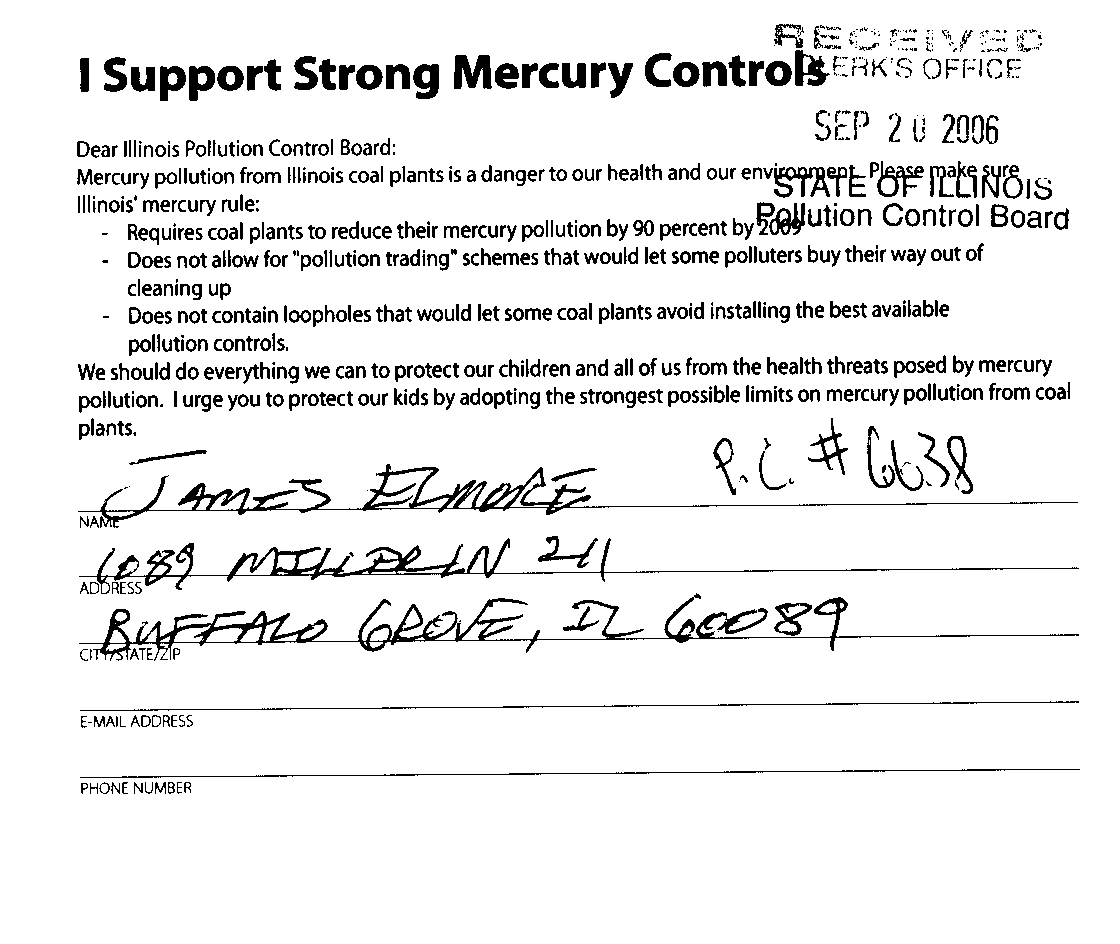 RECEIVED
CLERK'S OFFICE
I Support Strong Mercury Controls
SEP 20 2006
STATE OF ILLINOIS
Pollution Control Board
Dear Illinois Pollution Control Board:
Mercury pollution from Illinois coal plants is a danger to our health and our environment. Please make sure
Illinois' mercury rule:
- Requires coal plants to reduce their mercury pollution by 90 percent by 2009
- Does not allow for "pollution trading" schemes that would let some polluters buy their way out of
cleaning up
- Does not contain loopholes that would let some coal plants avoid installing the best available
pollution controls.
We should do everything we can to protect our children and all of us from the health threats posed by mercury
pollution. I urge you to protect our kids by adopting the strongest possible limits on mercury pollution from coal
plants.
P.C. # 6638
JAMES ELMORE
NAME
1089 211
ADDRESS
BUFFALO GROVE, IL 60089
CITY/STATE/ZIP
E-MAIL ADDRESS
PHONE NUMBER